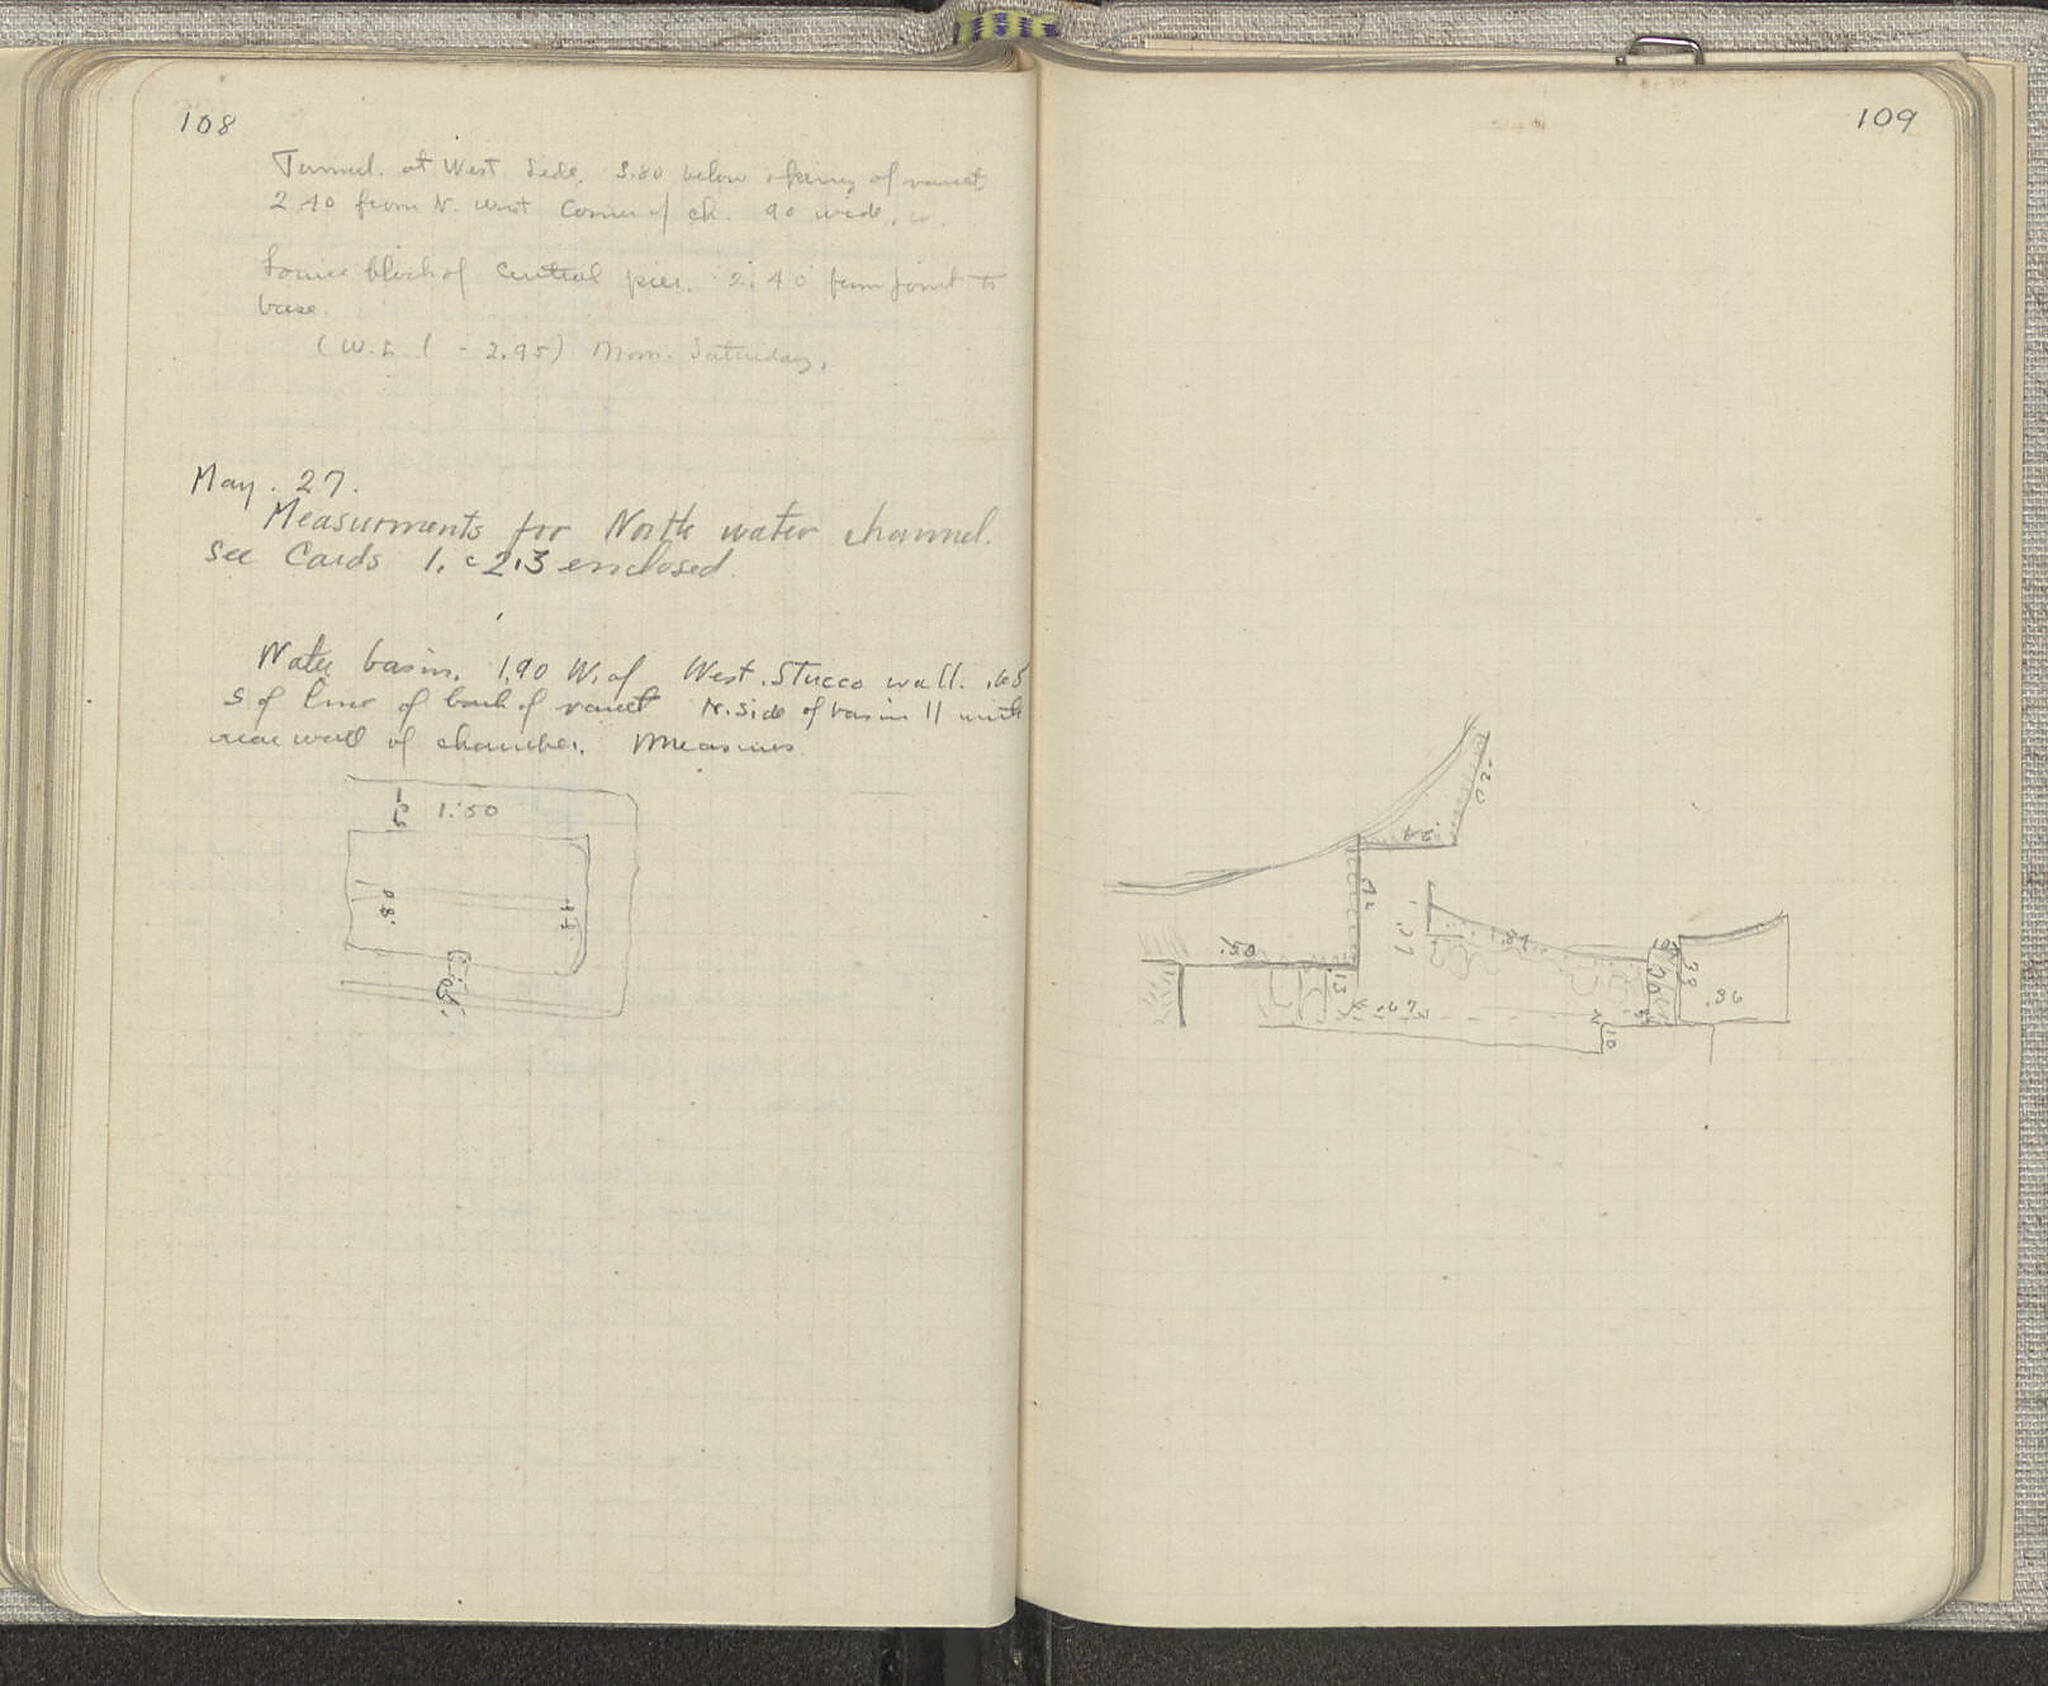 108
Tunnel. at West Side. 3.80 below spring of vault,
2.40 from N. West Corner of ch. 90 wide.
block of Central pier. 2.40 from joint to
base.
(W.L ( - 2.95) Mom. Saturday.
May. 27.
Measurments for North water channel.
See Cards 1. 2.3 enclosed.
Water basin. 1.90 W. of West. Stucco wall. .68
S of line of back of vault N. Side of basin || with
rear wall of chamber. Measures
1.50
.80
109
.20
.24
.50
.13
.67
.84
.10
.38
.36
.10